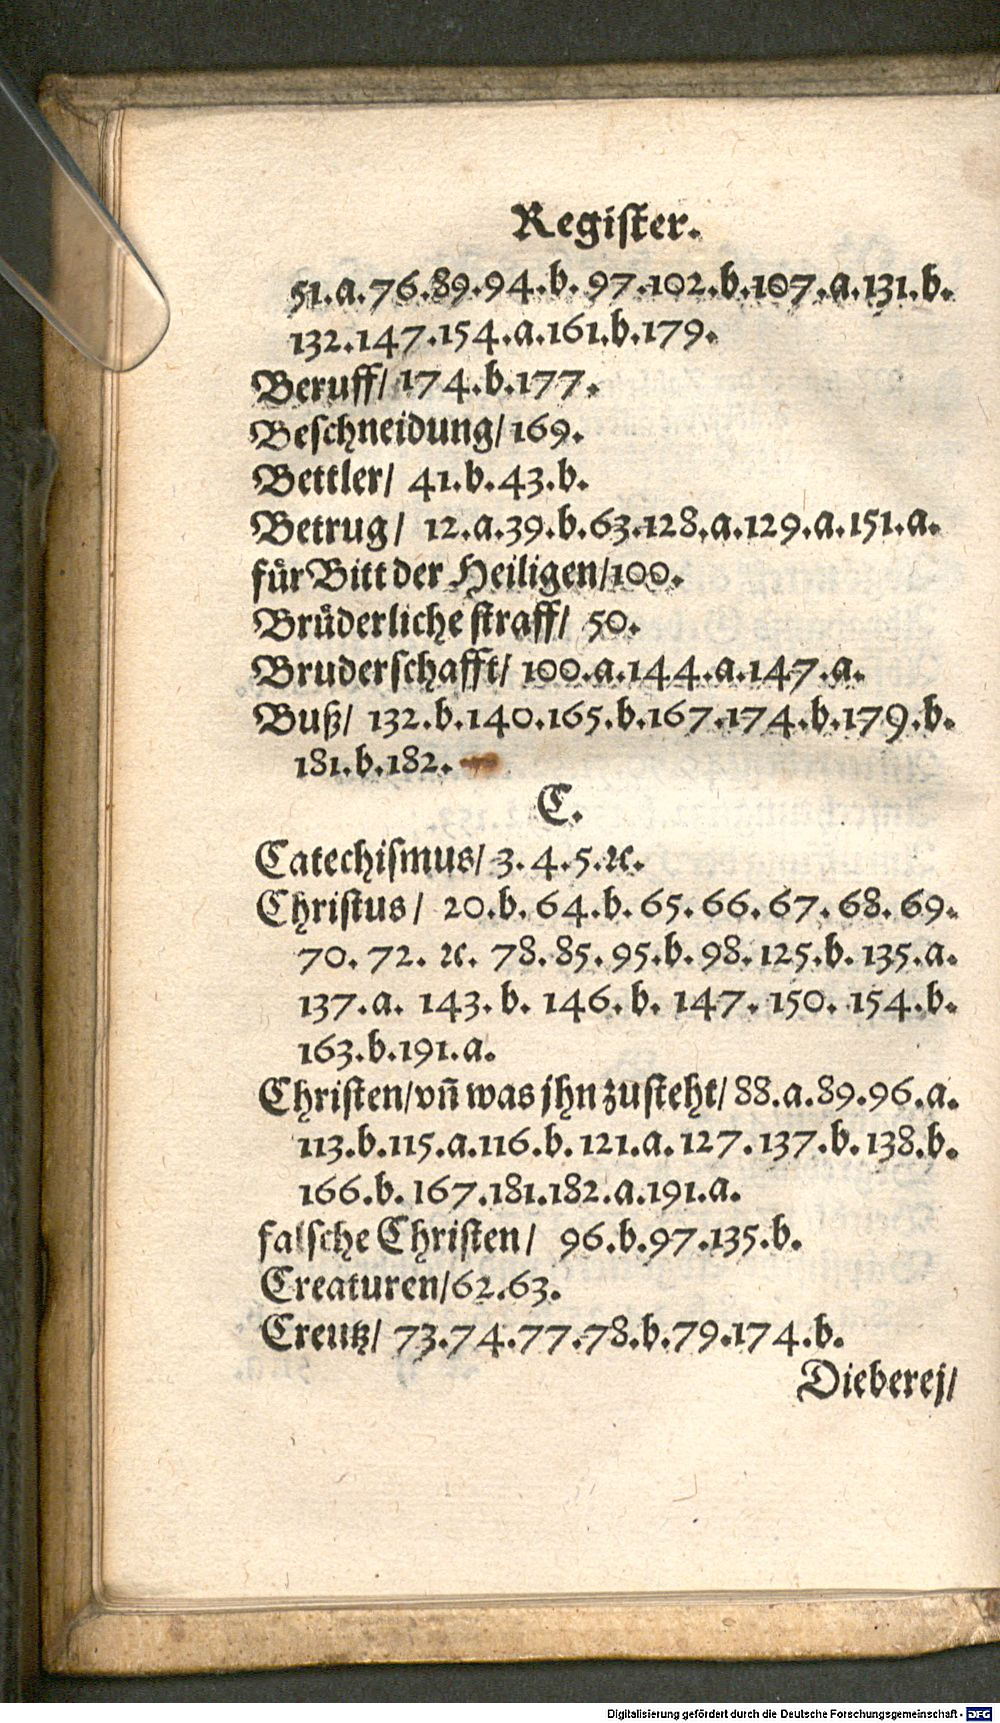 Regiſter.
51.a.76.89.94.b.97.102.b.107.a.131.b.
132.147.154.a.161.b.179.
Beruff/ 174.b.177.
Beſchneidung/ 169.
Bettler/ 41.b.43.b.
Betrug/ 12.a.39.b.63.128.a.129.a.151.a.
fuͤr Bitt der Heiligen/100.
Bruͤderliche ſtraff/ 50.
Bruderſchafft/ 100.a.144.a.147.a.
Buß/ 132.b.140.165.b.167.174.b.179.b.
181.b.182.
C.
Catechiſmus/ 3. 4. 5.ꝛc.
Chriſtus/ 20.b. 64.b. 65. 66. 67. 68. 69.
70. 72. ꝛc. 78. 85. 95.b. 98. 125.b. 135.a.
137.a. 143.b. 146.b. 147. 150. 154.b.
163.b.191.a.
Chriſten/vñ was jhn zuſteht/ 88.a.89.96.a.
113.b.115.a.116.b. 121.a. 127.137.b. 138.b.
166.b. 167.181.182.a.191.a.
falſche Chriſten/ 96.b.97.135.b.
Creaturen/62.63.
Creutz/ 73.74.77.78.b.79.174.b.
Dieberej/
Digitalisierung gefördert durch die Deutsche Forschungsgemeinschaft - DFG